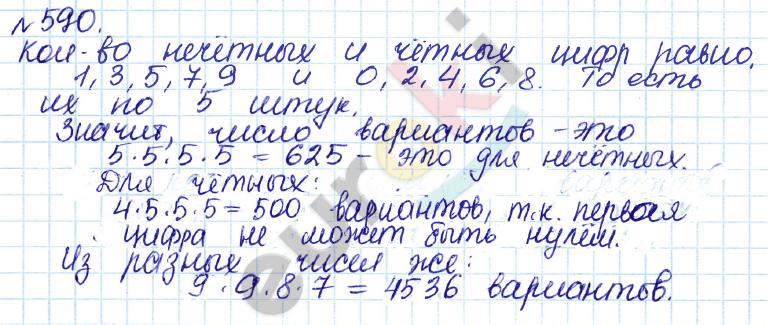 №590.
Кол-во нечётных и чётных цифр равно.
1, 3, 5, 7, 9 и 0, 2, 4, 6, 8. То есть
их по 5 штук.
Значит, число вариантов - это
5·5·5·5 = 625 - это для нечётных.
Для чётных:
4·5·5·5 = 500 вариантов, т.к. первая
цифра не может быть нулём.
Из разных чисел же:
9·9·8·7 = 4536 вариантов.
euroki